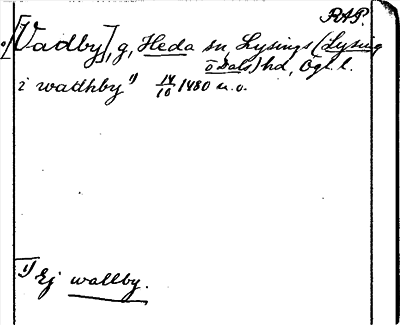 RAP.
[Vadby], g, Heda sn, Lysings (Lysing
o Dals) hd, Ögl. l.
i wadhby 1) 14/10 1480 u.o.
1) Ej wallby.